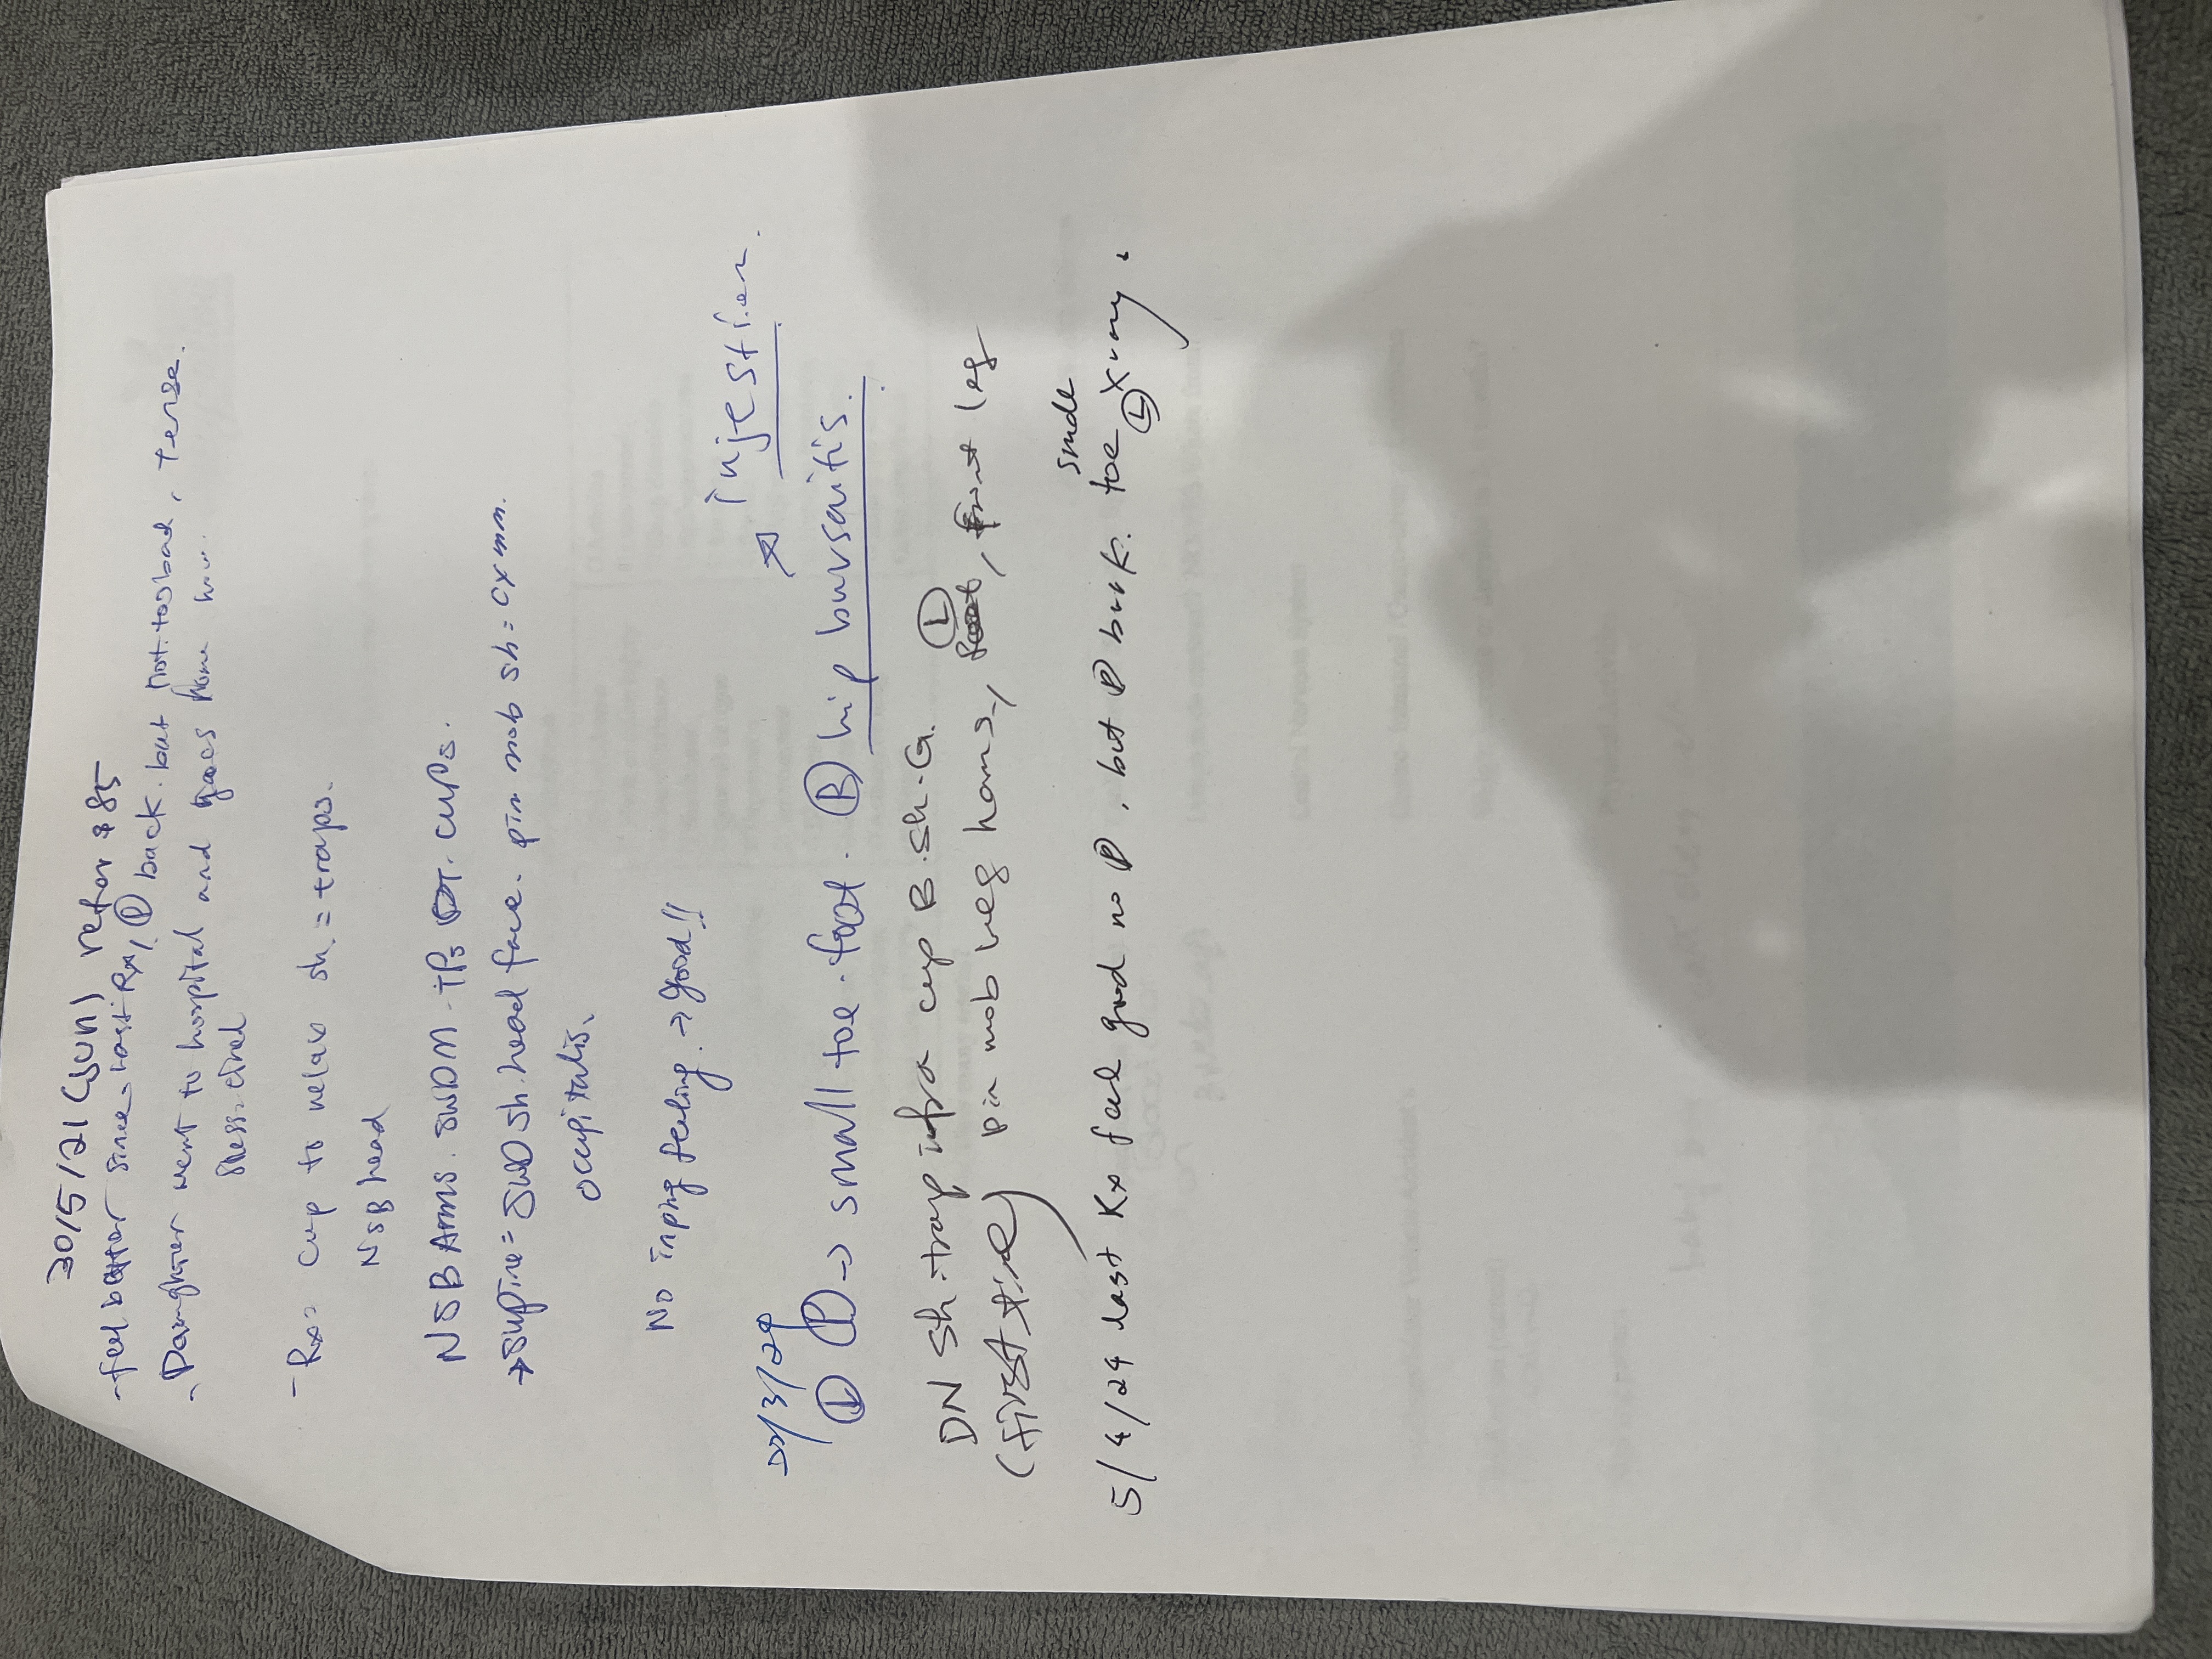 30/5/21 (sun) refor $85
- feel better since last Rx, Ⓟ back. but not too bad, Tense.
- Daughter went to hospital and goes home
- Rx= cup to relax sh. = traps.
NSB head
NSB Arms. SWDM - TPs cups.
→ supine = SWD sh. head face. pin mob sh = cx mm.
occupitalis.
No inping feeling. → good!!
↗ injestion.
Ⓛ Ⓟ → small toe. foot. Ⓑ hip bursaitis.
DN sh. trap infra cup B. sh. G.
(first time) pin mob leg hams, Ⓛ front leg
5/4/24 last Rx feel good no Ⓟ, but Ⓟ back. toe Ⓛ xray.